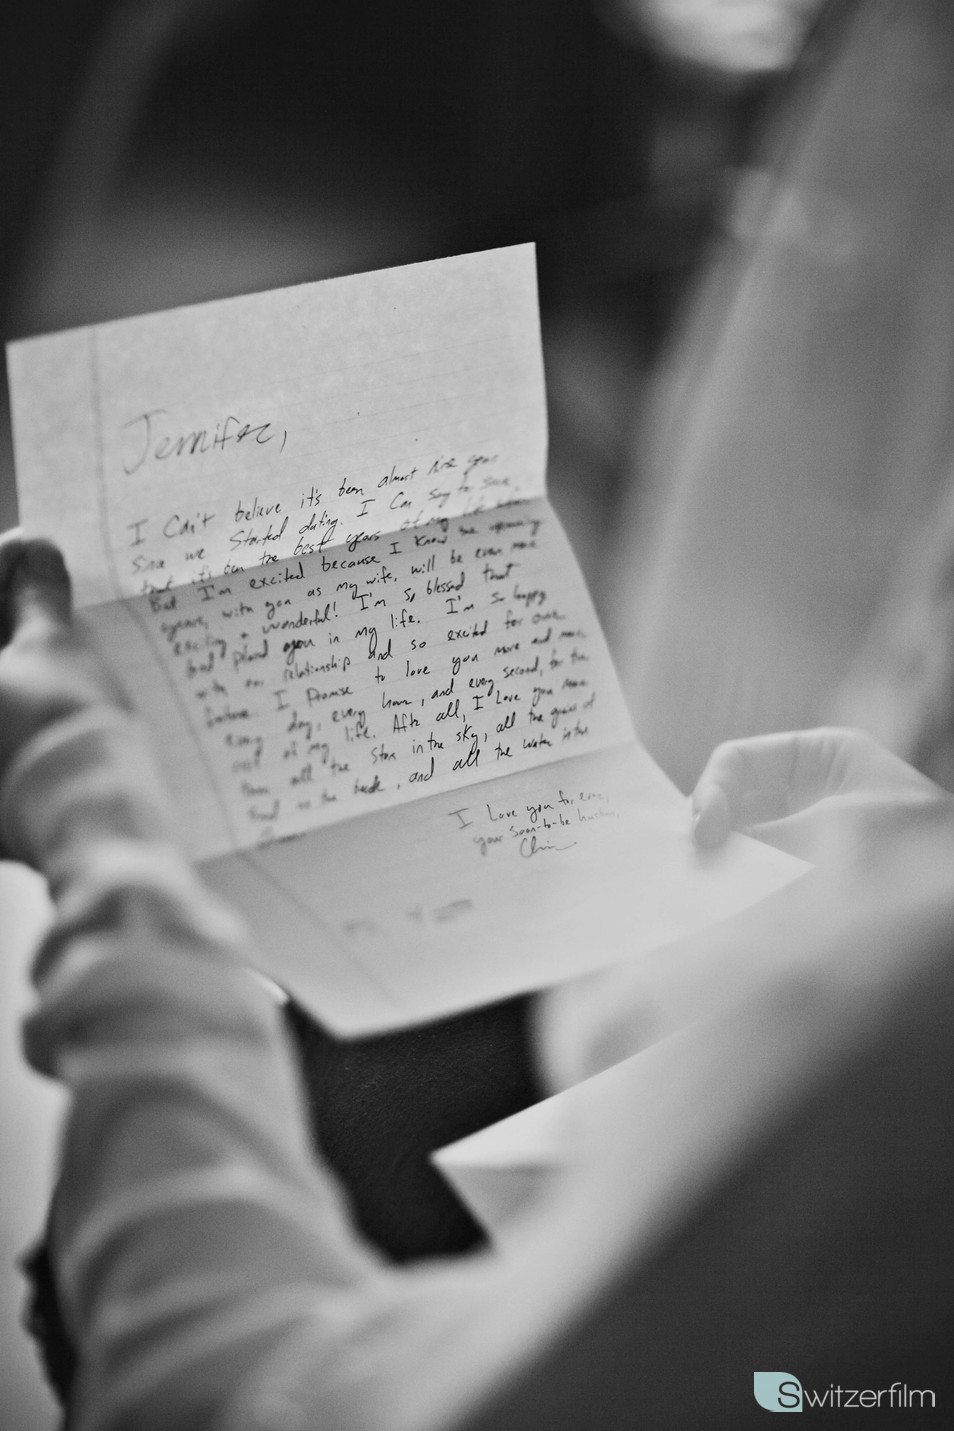 Jennifer,
I Can't believe it's been almost five years
Since we Started dating. I Can say for sure,
that it's been the best years of my life
But I'm excited because I know the upcoming
years, with you as my wife, will be even more
exciting + wonderful! I'm so blessed that
God placed you in my life. I'm so happy
with our relationship and so excited for our
future. I Promise to love you more and more,
every day, every hour, and every second, for the
rest of my life. After all, I Love you more
than all the Stars in the sky, all the grains of
Sand on the beach, and all the water in the
Ocean.
I Love you forever,
your Soon-to-be husband,
Chris
Switzerfilm